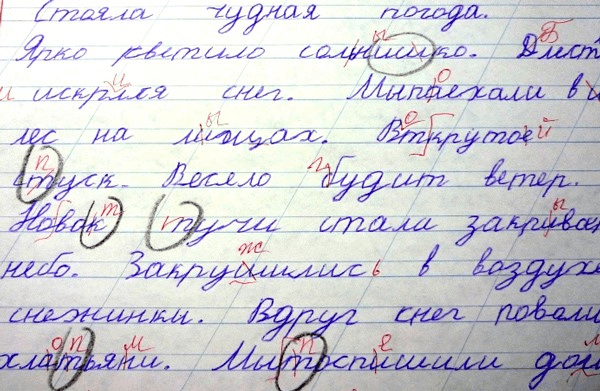 Стояла чудная погода.
Ярко кветило солншико.
искрился снег. Мыпаехали в
лес на лищах. Вткрутой
стуск. Весело будит ветер.
Новак тучи стали закриват
небо. Закрушились в воздухе
снежинки. Вдруг снег повали
хлатьяни. Мытоспишили дом